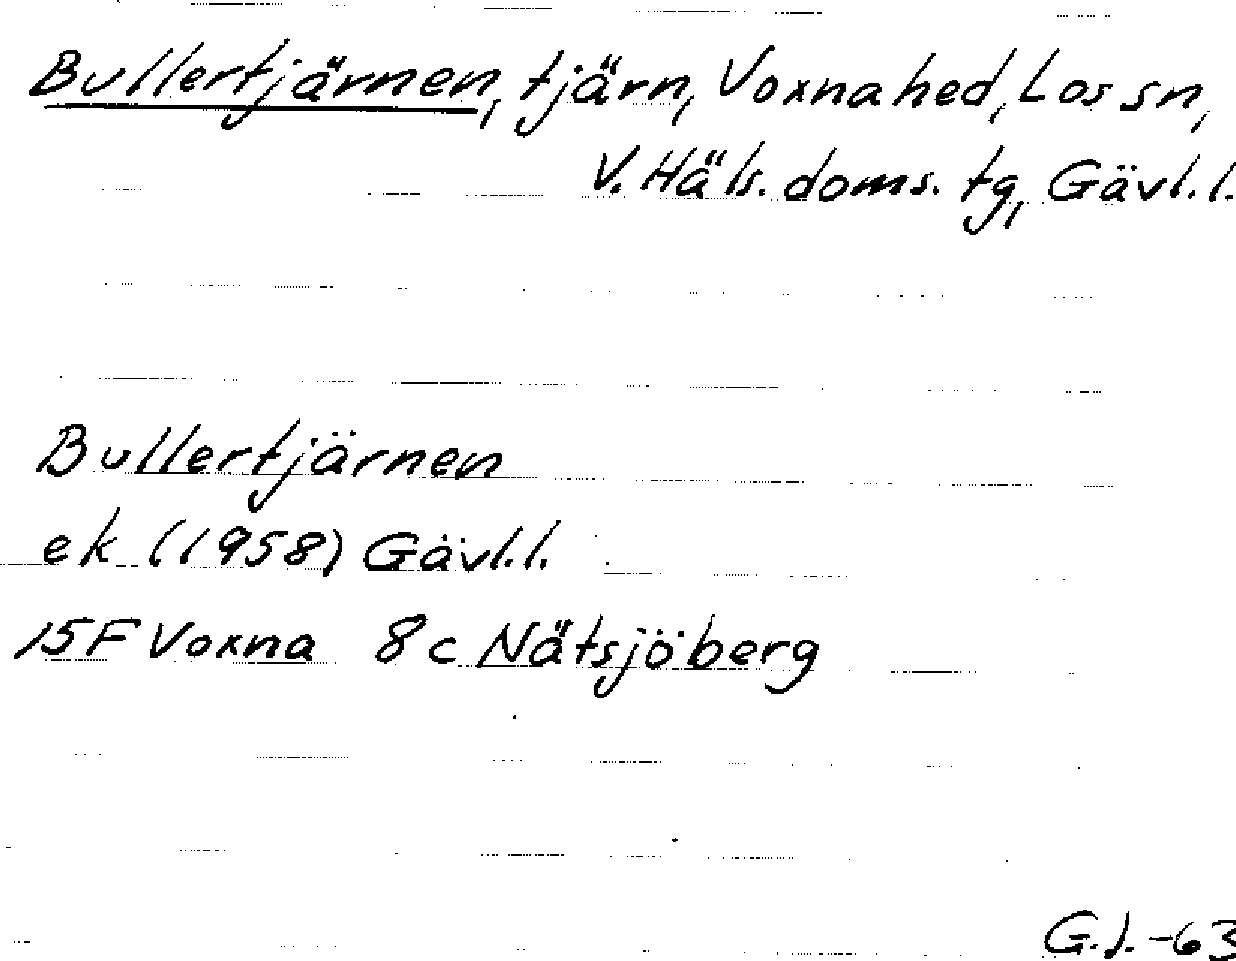 Bullertjärnen, tjärn, Voxnahed, Los sn,
V. Häls. doms. tg, Gävl. l.
Bullertjärnen
ek (1958) Gävl. l.
15F Voxna 8c Nätsjöberg
G.J.-63